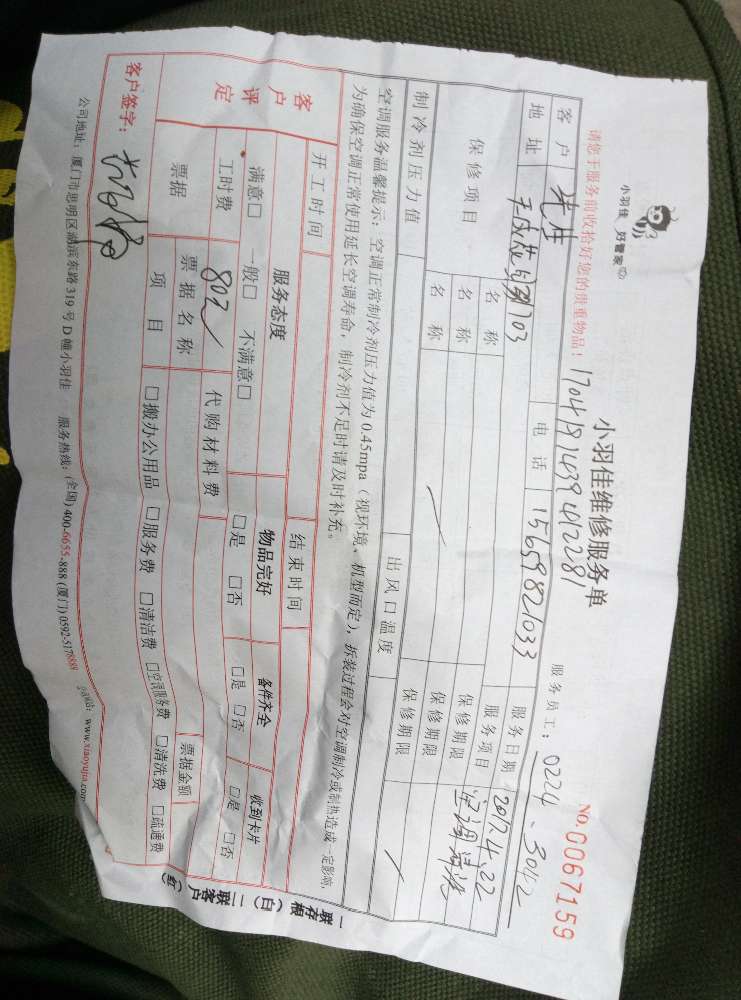 小羽佳 好管家
小羽佳维修服务单
NO.0067159
请您于服务前收拾好您的贵重物品!
17041911439412281
服务员工: 0224、3042
客户 先生 电话 15659821033 服务日期 2017.4.22
地址 703 服务项目 空调清洗
保修项目 名称 保修期限
名称 保修期限
名称 保修期限
制冷剂压力值 出风口温度
空调服务温馨提示:空调正常制冷剂压力值为0.45mpa(视环境、机型而定),拆装过程会对空调制冷或制热造成一定影响,
为确保空调正常使用延长空调寿命,制冷剂不足时请及时补充。
开工时间 结束时间
客户评定 服务态度 物品完好 备件齐全 收到卡片
满意□ 一般□ 不满意□ □是 □否 □是 □否 □是 □否
工时费 80元 代购材料费
票据 票据名称 票据金额
项目 □搬办公用品 □服务费 □清洁费 □空调服务费 □清洗费 □疏通费
客户签字:
公司地址:厦门市思明区湖滨东路319号D幢小羽佳 服务热线:(全国)400-6655-888 (厦门)0592-5178888 公司网站:www.xiaoyujia.com
一联存根(白) 二联客户(红)